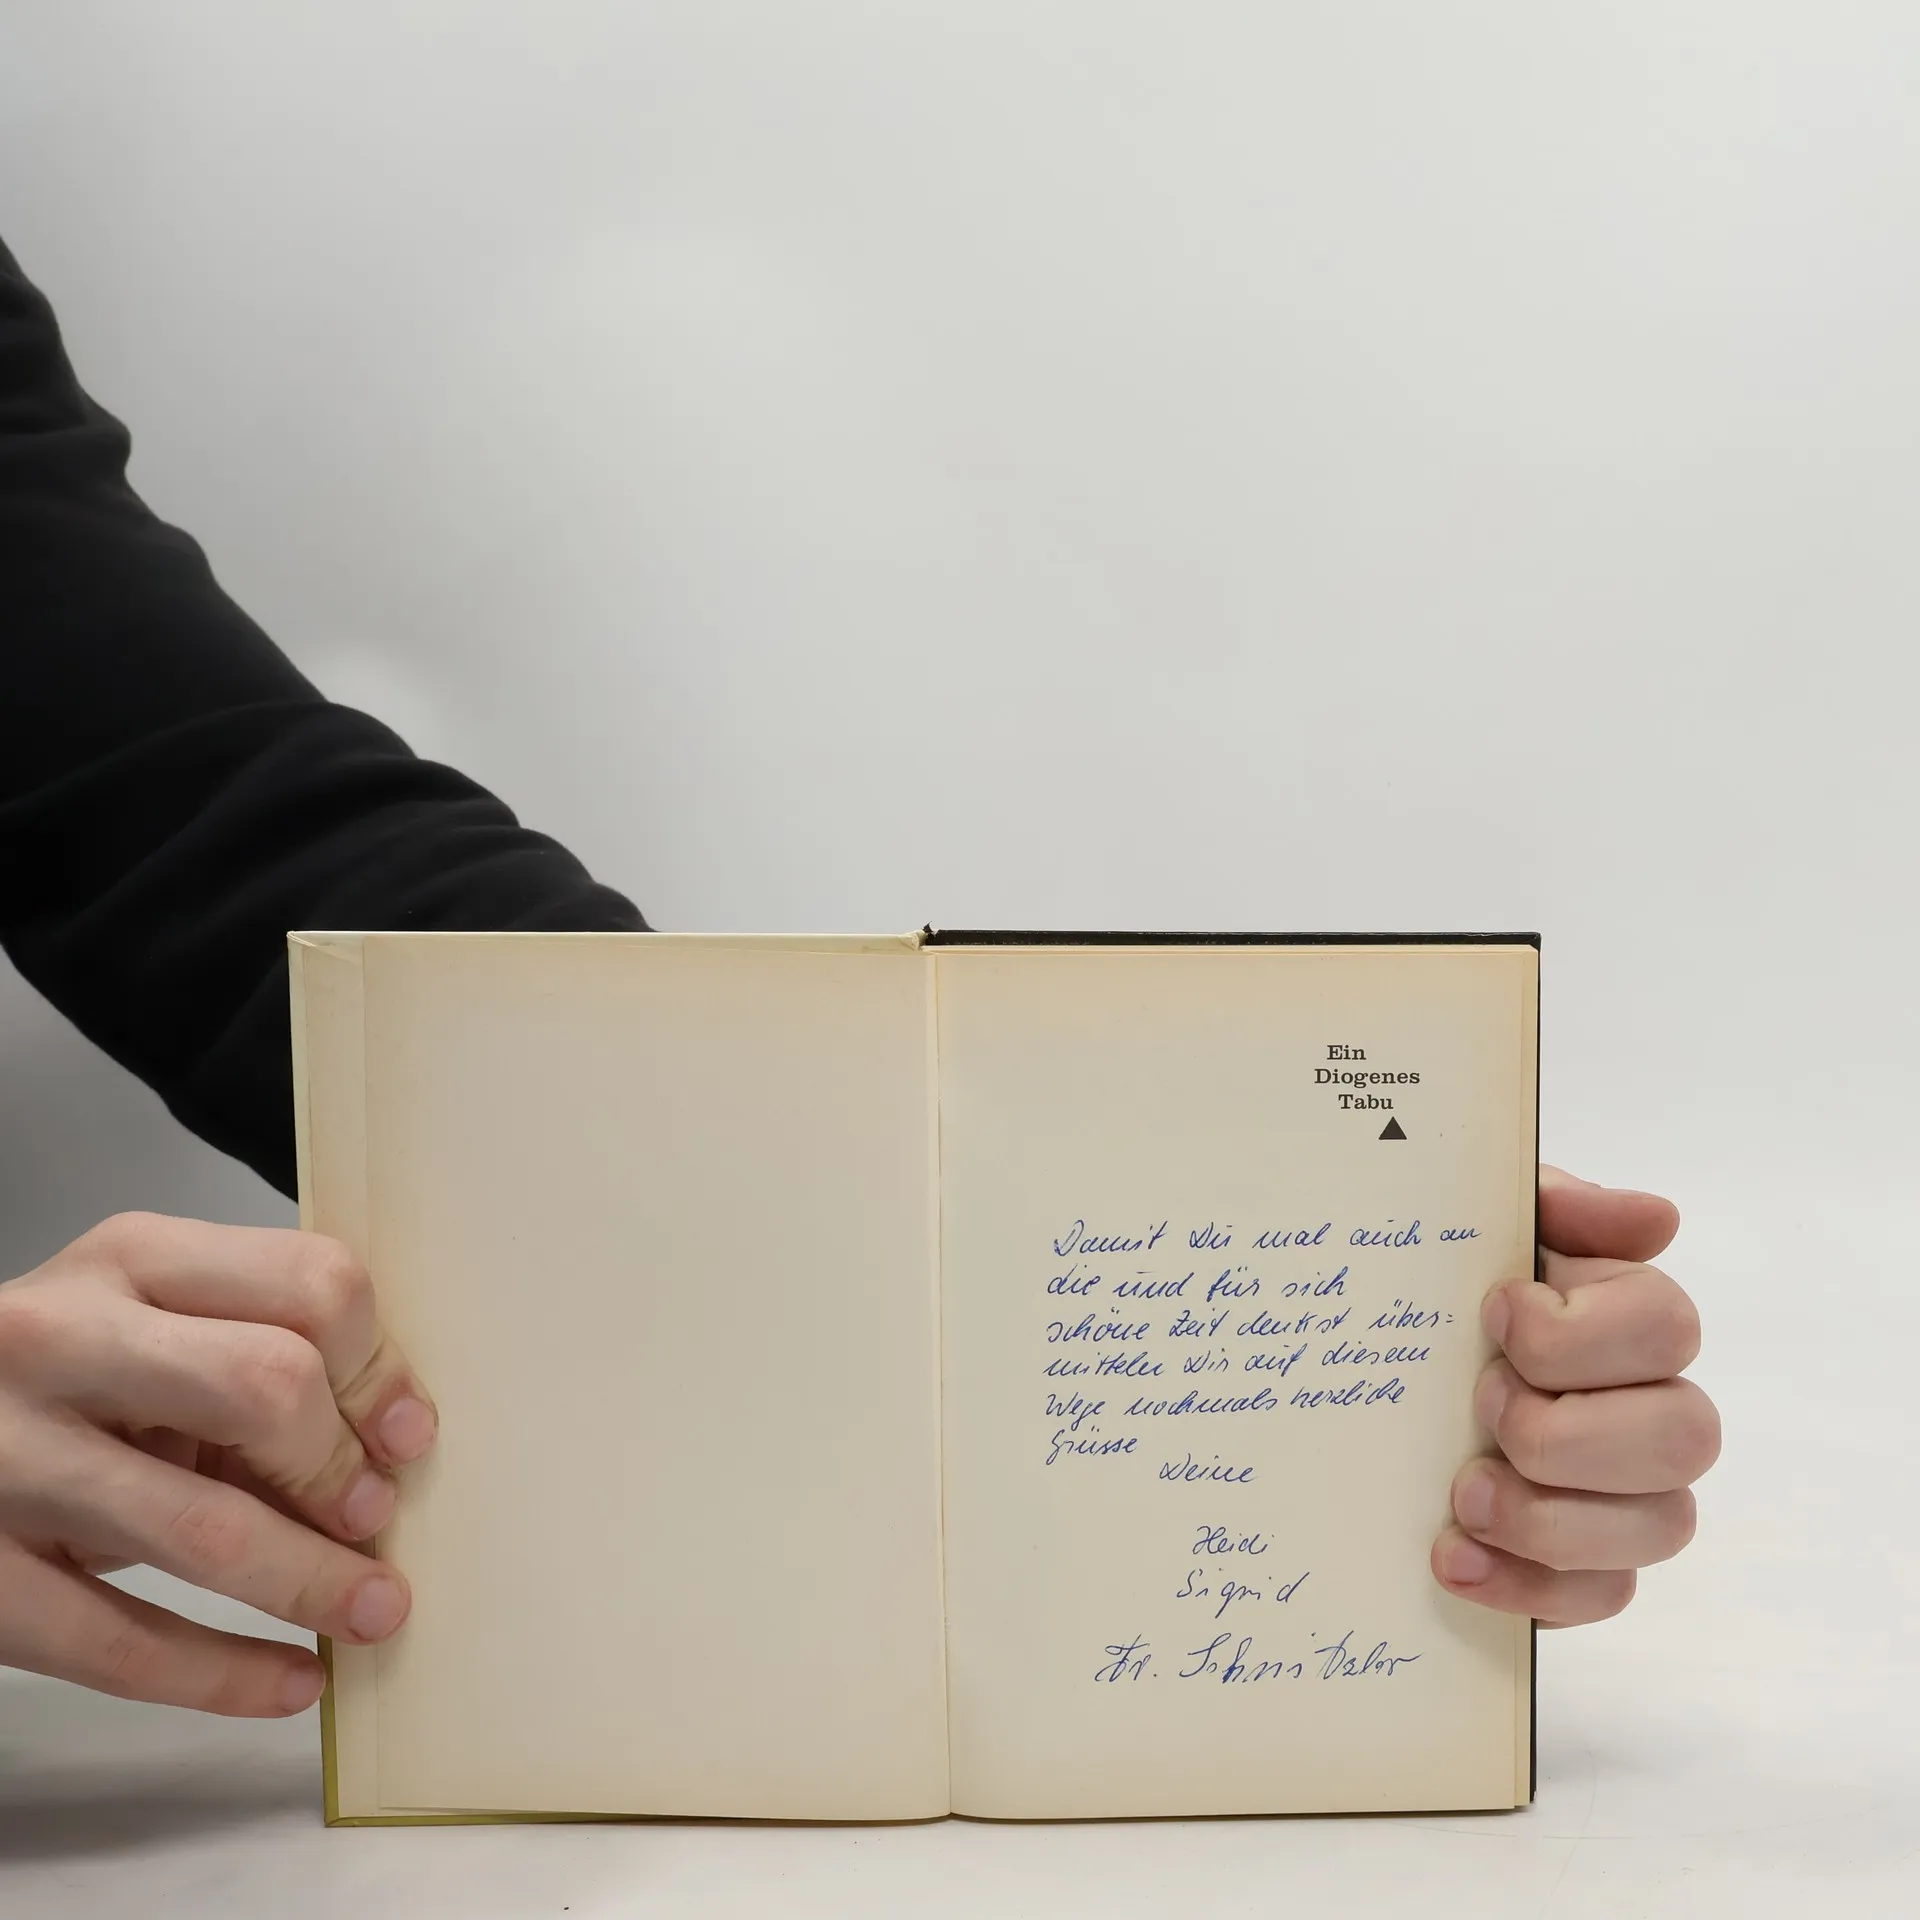 Ein
Diogenes
Tabu
Damit Du mal auch an
die und für sich
schöne Zeit denkst über=
mitteln Dir auf diesem
Wege nochmals herzliche
Grüsse
Deine
Heidi
Sigrid
Fr. Schnitzler